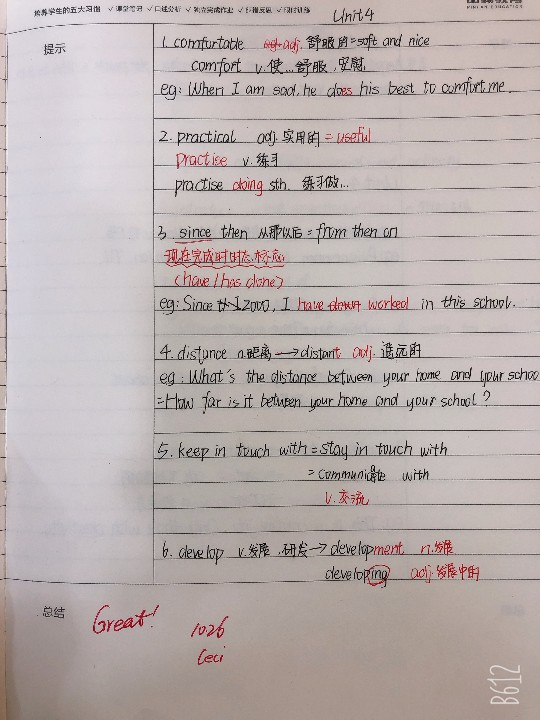 培养学生的五大习惯 ✓课堂笔记 ✓口述分析 ✓独立完成作业 ✓纠错反思 ✓限时训练
MINLAN EDUCATION
Unit 4
提示
1. comfortable adj. 舒服的=soft and nice
comfort v. 使...舒服,安慰
eg: When I am sad, he does his best to comfort me.
2. practical adj. 实用的 = useful
Practise v. 练习
practise doing sth. 练习做...
3. since then 从那以后 = from then on
现在完成时时态标志
(have / has done)
eg: Since 2000, I have worked in this school.
4. distance n.距离 → distant adj. 遥远的
eg: What's the distance between your home and your schoo
=How far is it between your home and your school?
5. keep in touch with = stay in touch with
= communicate with
v. 交流
6. develop v.发展,研发 → development n.发展
developing adj.发展中的
总结
Great!
1026
Ceci
B612